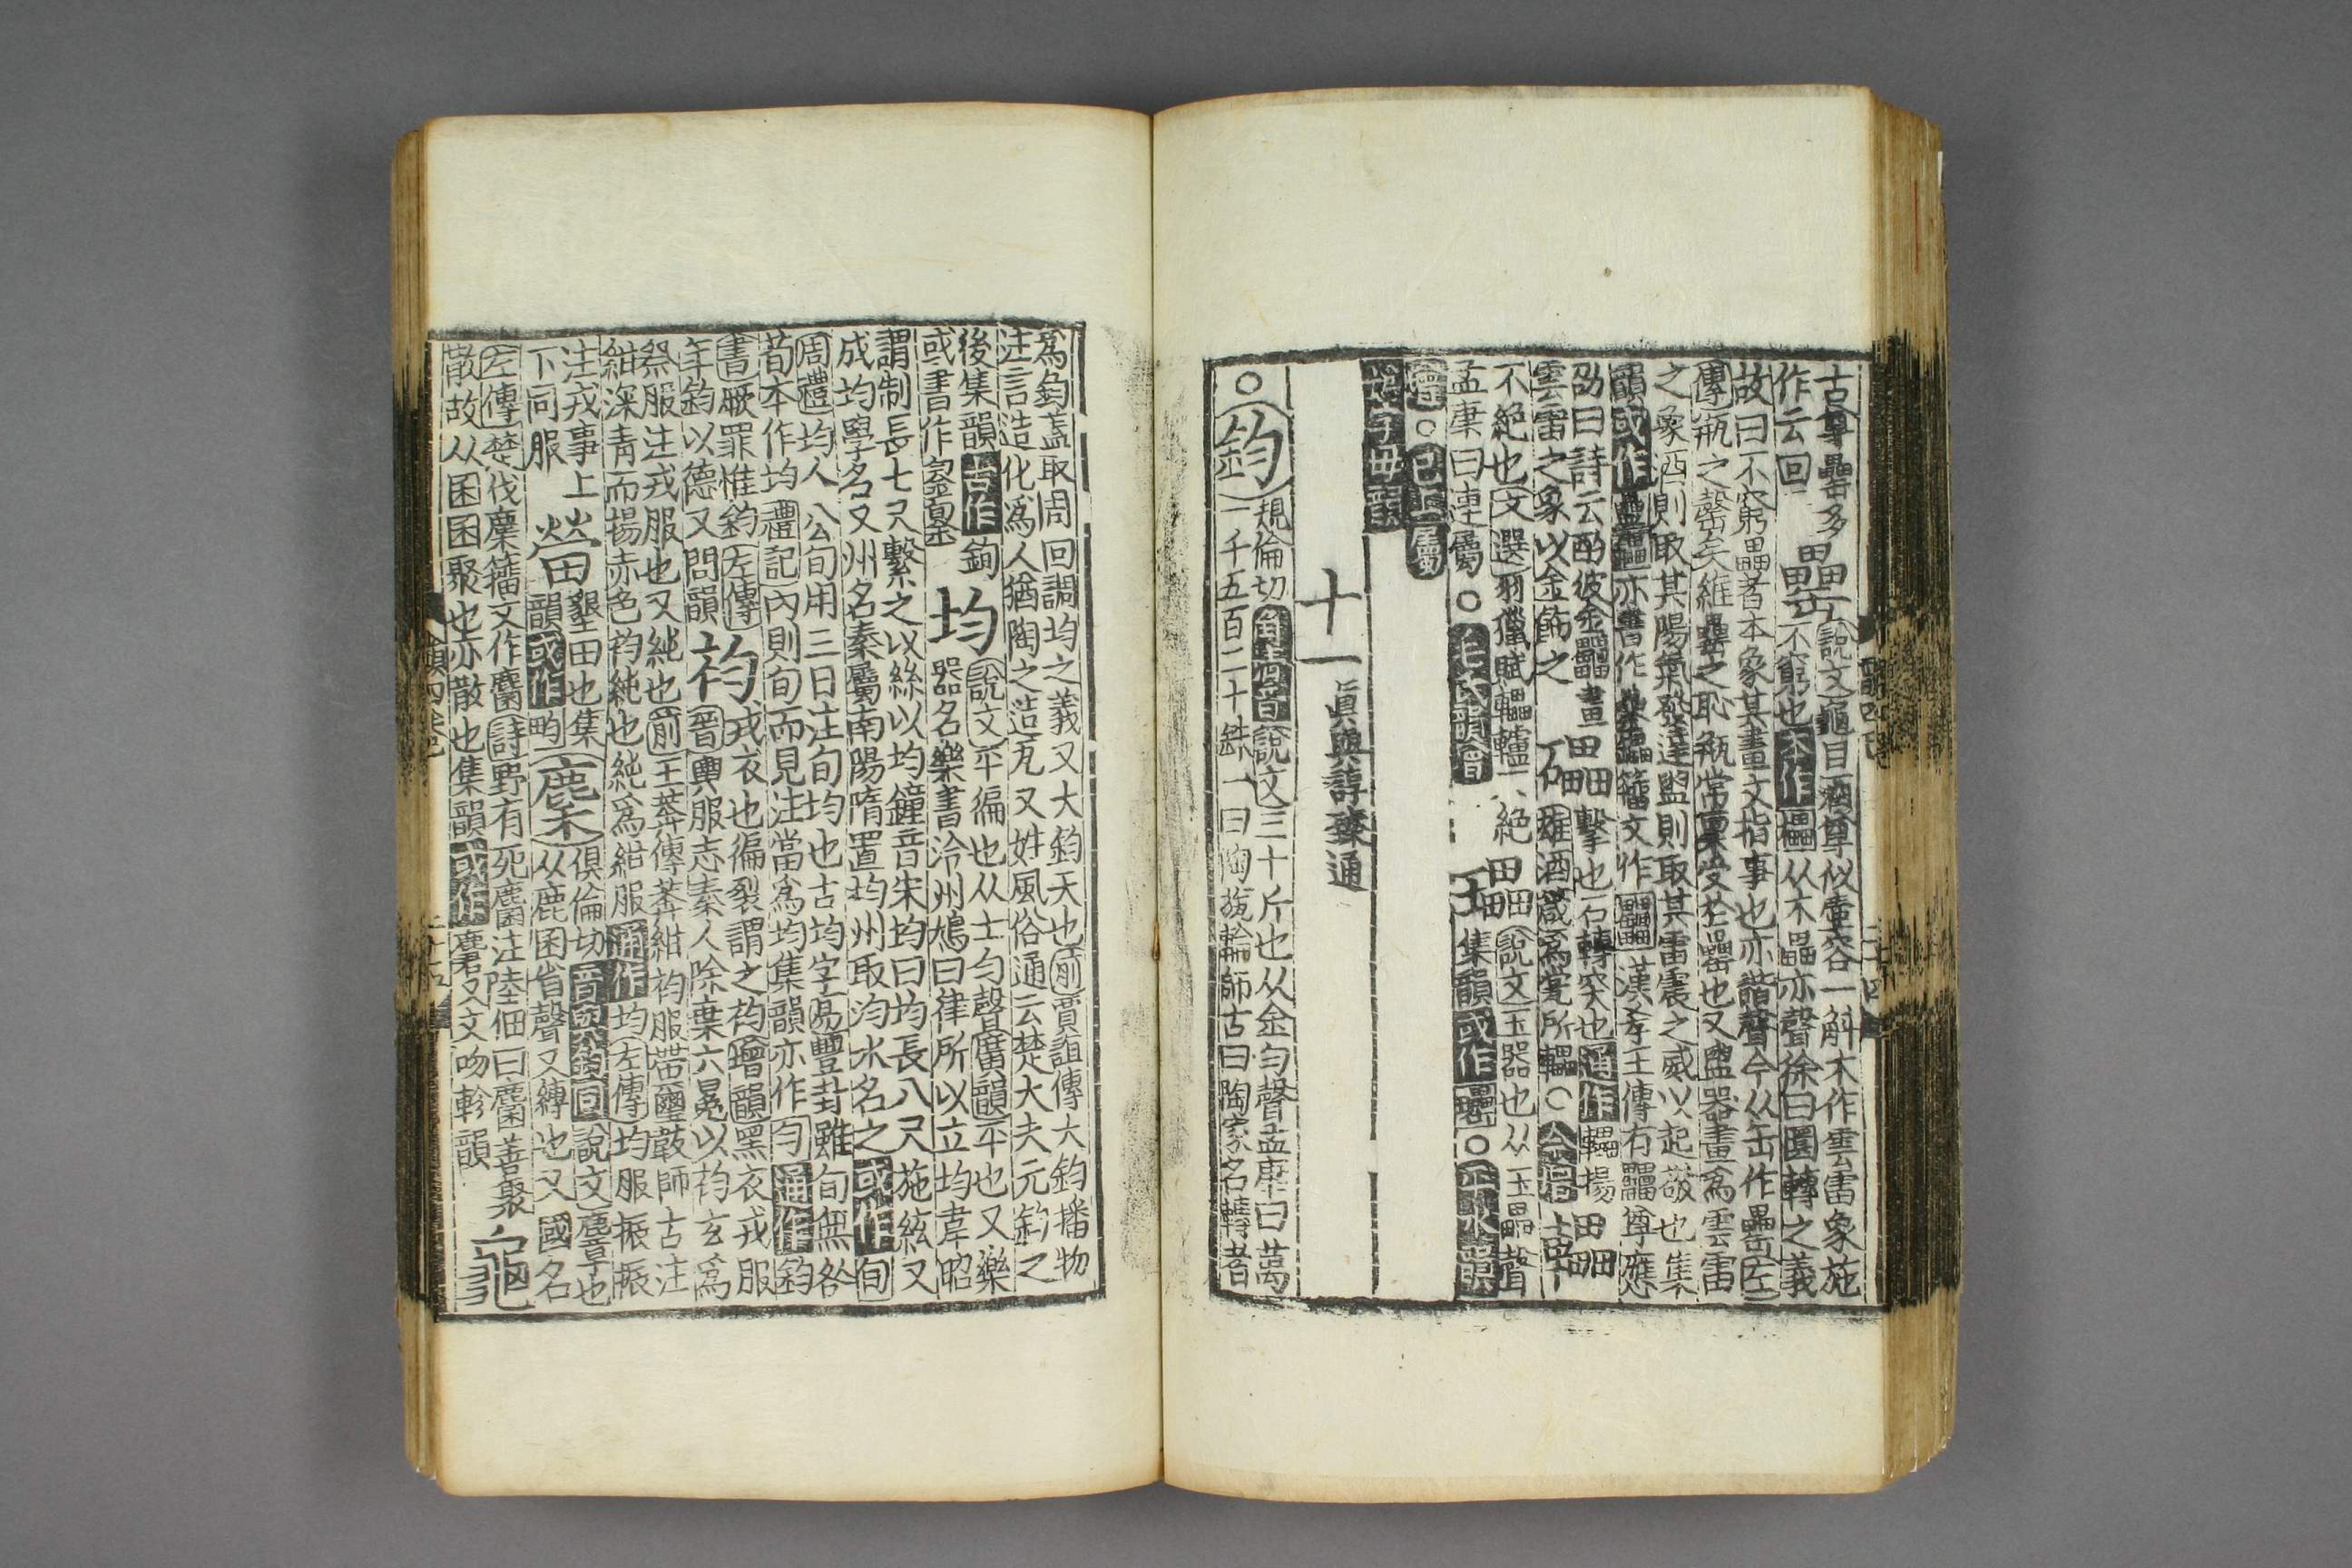 古尊罍多
罍
說文龜目酒尊似壺容一斛木作雲雷象施
不窮也本作櫑从木畾亦聲徐曰圜轉之義
作云回
故曰不窮畾者本象其畫文指事也亦諧聲今从缶作罍左
傳缾之罄矣維罍之恥缾常稟受於罍也又盥器畫爲雲雷
之象酒則取其陽氣發達盥則取其雷震之威以起敬也集
韻或作
亦書作
籒文作
漢孝王傳有罍尊應
劭曰詩云酌彼金罍畫
雲雷之象以金飾之
擊也石轉突也通作轠揚
雄酒箴爲瓽所轠
不絕也文選羽獵賦轠轤不絕
說文玉器也从玉畾聲
孟康曰連屬○毛氏韻增
集韻或作
會○已上屬
字母韻
十一眞與諄臻通
○鈞
規倫切角清濁音說文三十斤也从金勻聲孟康曰萬
一千五百二十銖一曰陶旊輪師古曰陶家名轉者
爲鈞蓋取周回調均之義又大鈞天也前賈誼傳大鈞播物
注言造化爲人猶陶之造瓦又姓風俗通云楚大夫元鈞之
後集韻古作銁
均
說文平徧也从土勻聲廣韻平也又樂
器名樂書泠州鳩曰律所以立均韋昭
或書作
謂制長七尺繫之以絲以均鐘音朱均曰均長八尺施絃又
成均學名又州名秦屬南陽隋置均州取汮水名之或作旬
周禮均人公旬用三日注旬均也古均字易豐封雖旬無咎
荀本作均禮記內則旬而見注當爲均集韻亦作勻通作鈞
書厥罪惟鈞左傳
年鈞以德又問韻
袀
戎衣也徧裂謂之袀增韻黑衣戎服
晉輿服志秦人除棄六冕以袀玄爲
祭服注戎服也又純也前王莽傳莽紺袀服帶璽韍師古注
紺深青而揚赤色袀純也純爲紺服通作均左傳均服振振
注戎事上
下同服
畇
墾田也集
韻或作畇
麇
俱倫切音與鈞同說文麞也
从鹿囷省聲又縛也又國名
左傳楚伐麇籒文作麕詩野有死麕注陸佃曰麕善聚
散故从囷囷聚也亦散也集韻或作麏又文吻軫韻
龜